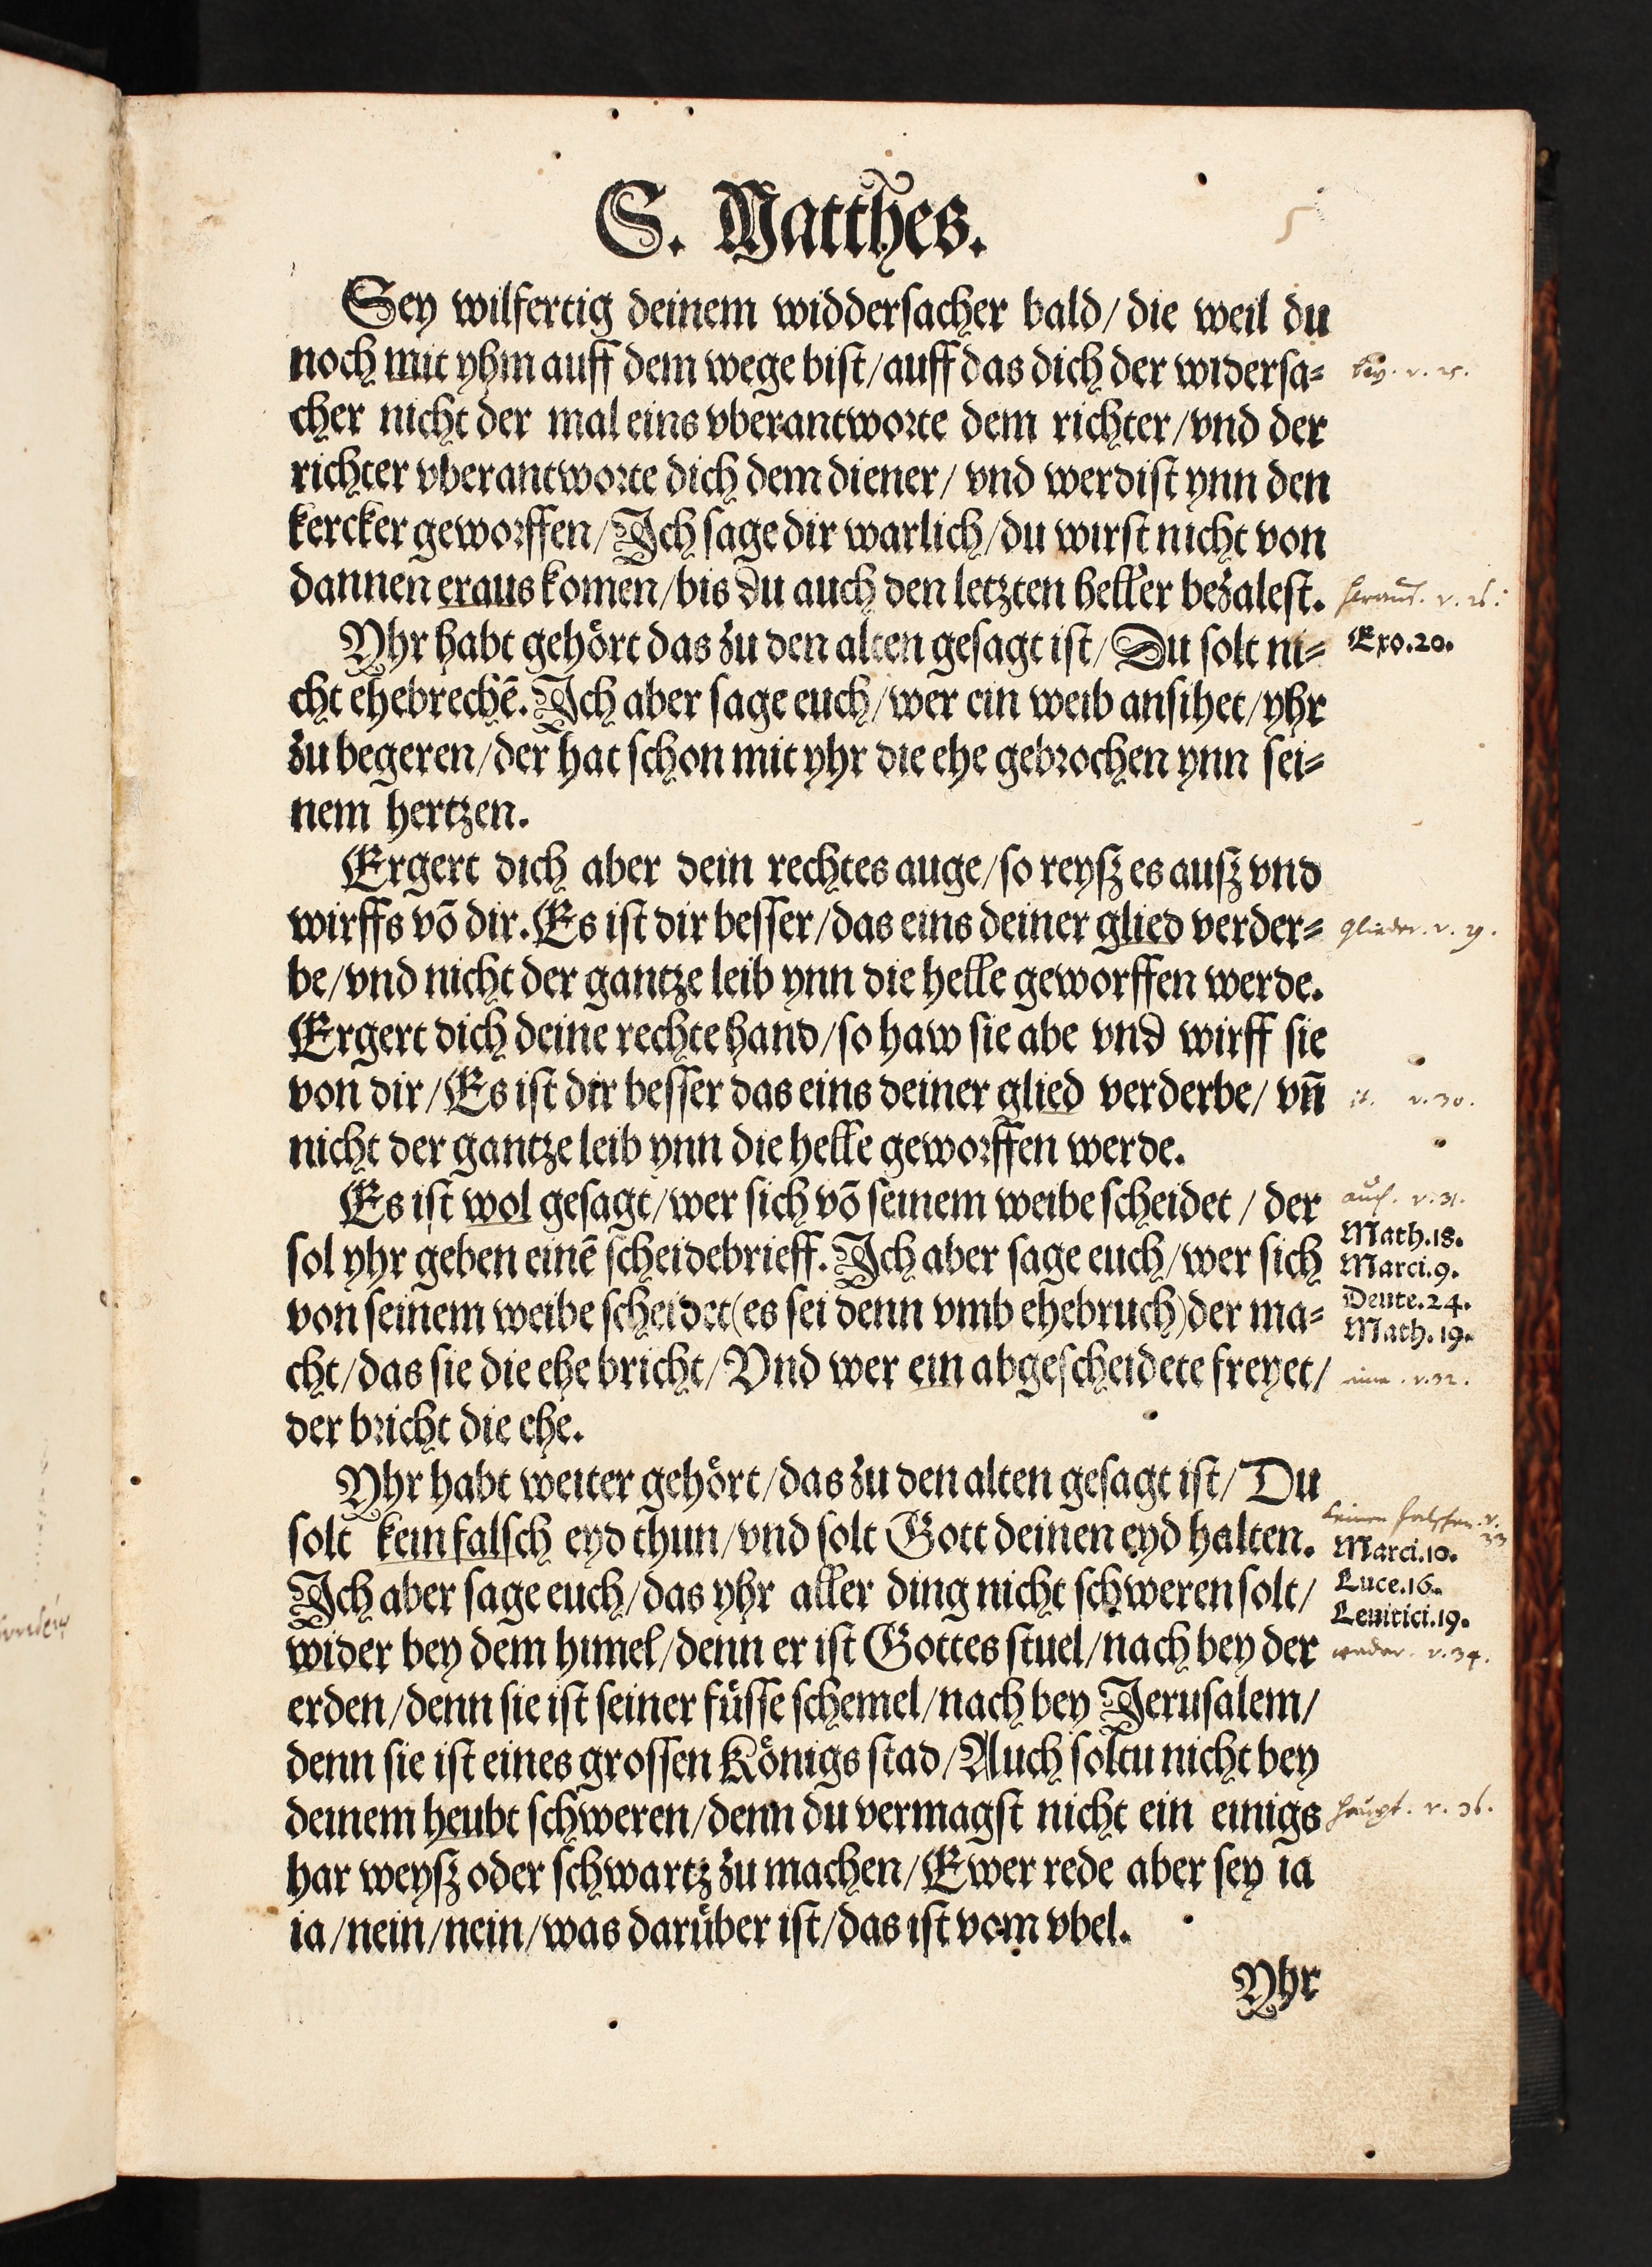 S. Matthes.
5
Sey wilfertig deinem widdersacher bald/ die weil du
noch mit yhm auff dem wege bist/ auff das dich der widersa⸗
bey. v. 25.
cher nicht der mal eins vberantworte dem richter/ vnd der
richter vberantworte dich dem diener/ vnd werdist ynn den
kercker geworffen/ Ich sage dir warlich/ du wirst nicht von
dannen eraus komen/ bis du auch den letzten heller bezalest.
heraus. v. 26.
Yhr habt gehört das zu den alten gesagt ist/ Du solt ni⸗
Exo.20.
cht ehebrechē. Ich aber sage euch/ wer ein weib ansihet/ yhr
zu begeren/ der hat schon mit yhr die ehe gebrochen ynn sei⸗
nem hertzen.
Ergert dich aber dein rechtes auge/ so reysz es ausz vnd
wirffs vō dir. Es ist dir besser/ das eins deiner glied verder⸗
glieder. v. 29.
be/ vnd nicht der gantze leib ynn die helle geworffen werde.
Ergert dich deine rechte hand/ so haw sie abe vnd wirff sie
von dir/ Es ist dir besser das eins deiner glied verderbe/ vñ
it. v. 30.
nicht der gantze leib ynn die helle geworffen werde.
Es ist wol gesagt/ wer sich vō seinem weibe scheidet/ der
auch. v. 31.
Math.18.
sol yhr geben einē scheidebrieff. Ich aber sage euch/ wer sich
Marci.9.
Deute.24.
von seinem weibe scheidet (es sei denn vmb ehebruch) der ma⸗
Math.19.
cht/ das sie die ehe bricht/ Vnd wer ein abgescheidete freyet/
eine. v. 32.
der bricht die ehe.
Yhr habt weiter gehört/ das zu den alten gesagt ist/ Du
keinen falschen. v. 33
solt kein falsch eyd thun/ vnd solt Gott deinen eyd halten.
Marci.10.
Luce.16.
Ich aber sage euch/ das yhr aller ding nicht schweren solt/
Leuitici.19.
wider bey dem himel/ denn er ist Gottes stuel/ nach bey der
weder. v. 34.
erden/ denn sie ist seiner füsse schemel/ nach bey Jerusalem/
denn sie ist eines grossen Königs stad/ Auch soltu nicht bey
deinem heubt schweren/ denn du vermagst nicht ein einigs
haupt. v. 36.
har weysz oder schwartz zu machen/ Ewer rede aber sey ia
ia/ nein/ nein/ was darüber ist/ das ist vom vbel.
Yhr